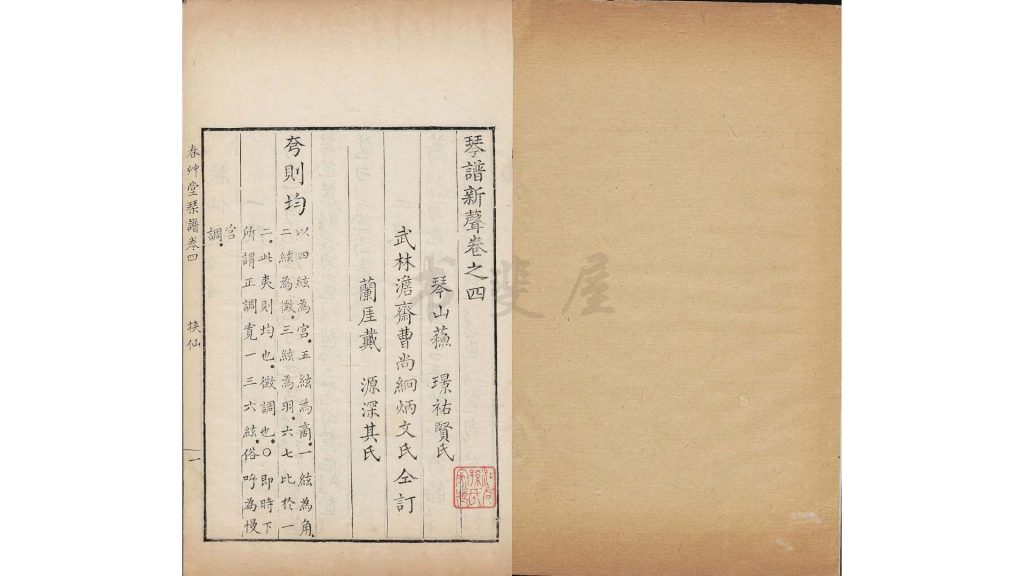 琴譜新聲卷之四
琴山蘓　璟祐賢氏
武林澹齋曹尚絅炳文氏仝訂
蘭厓戴　源深其氏
夷則均
以四絃為宮。五絃為商。一絃為角。
二絃為徵。三絃為羽。六七比於一
二。此夷則均也。徵調也。○即時下
所謂正調寬一三六絃。俗呼為慢
宮調。
春艸堂琴譜卷四
挾仙
一